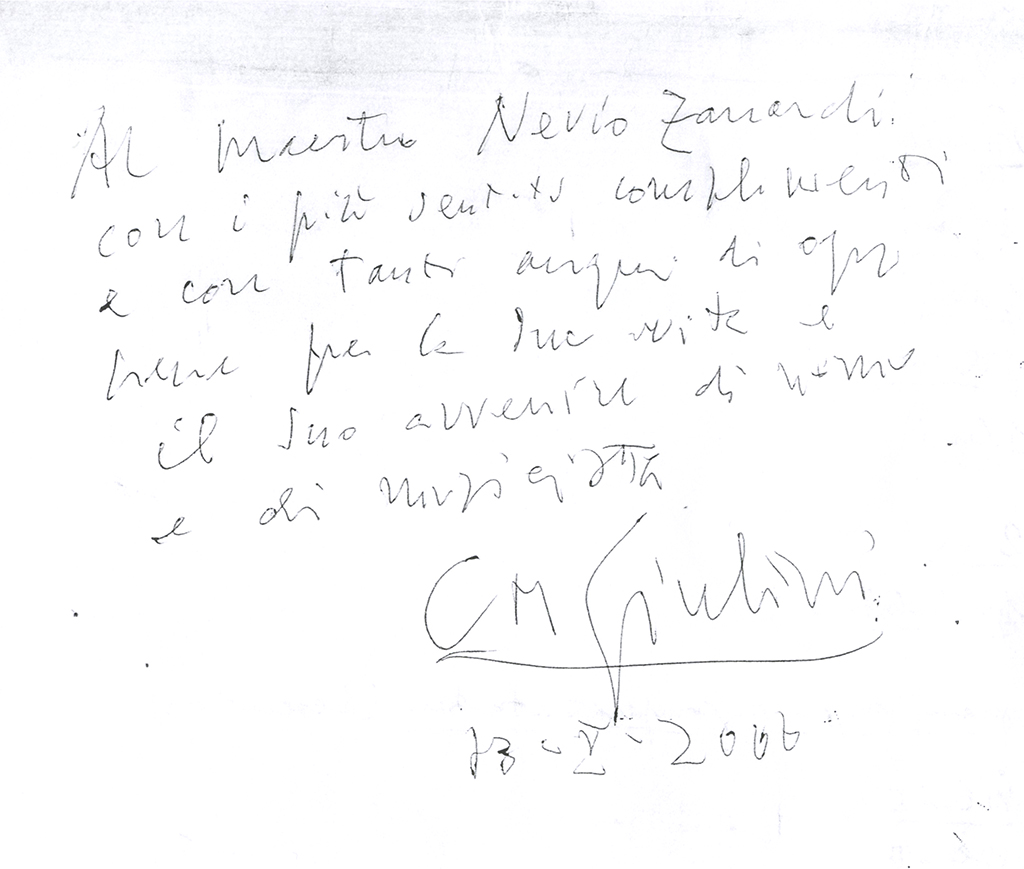 Al Maestro Nevio Zanardi
con i più sentiti complimenti
e con tanti auguri di ogni
bene per la Sua vita e
il Suo avvenire di uomo
e di musicista
CM Giulini
13-I-2006